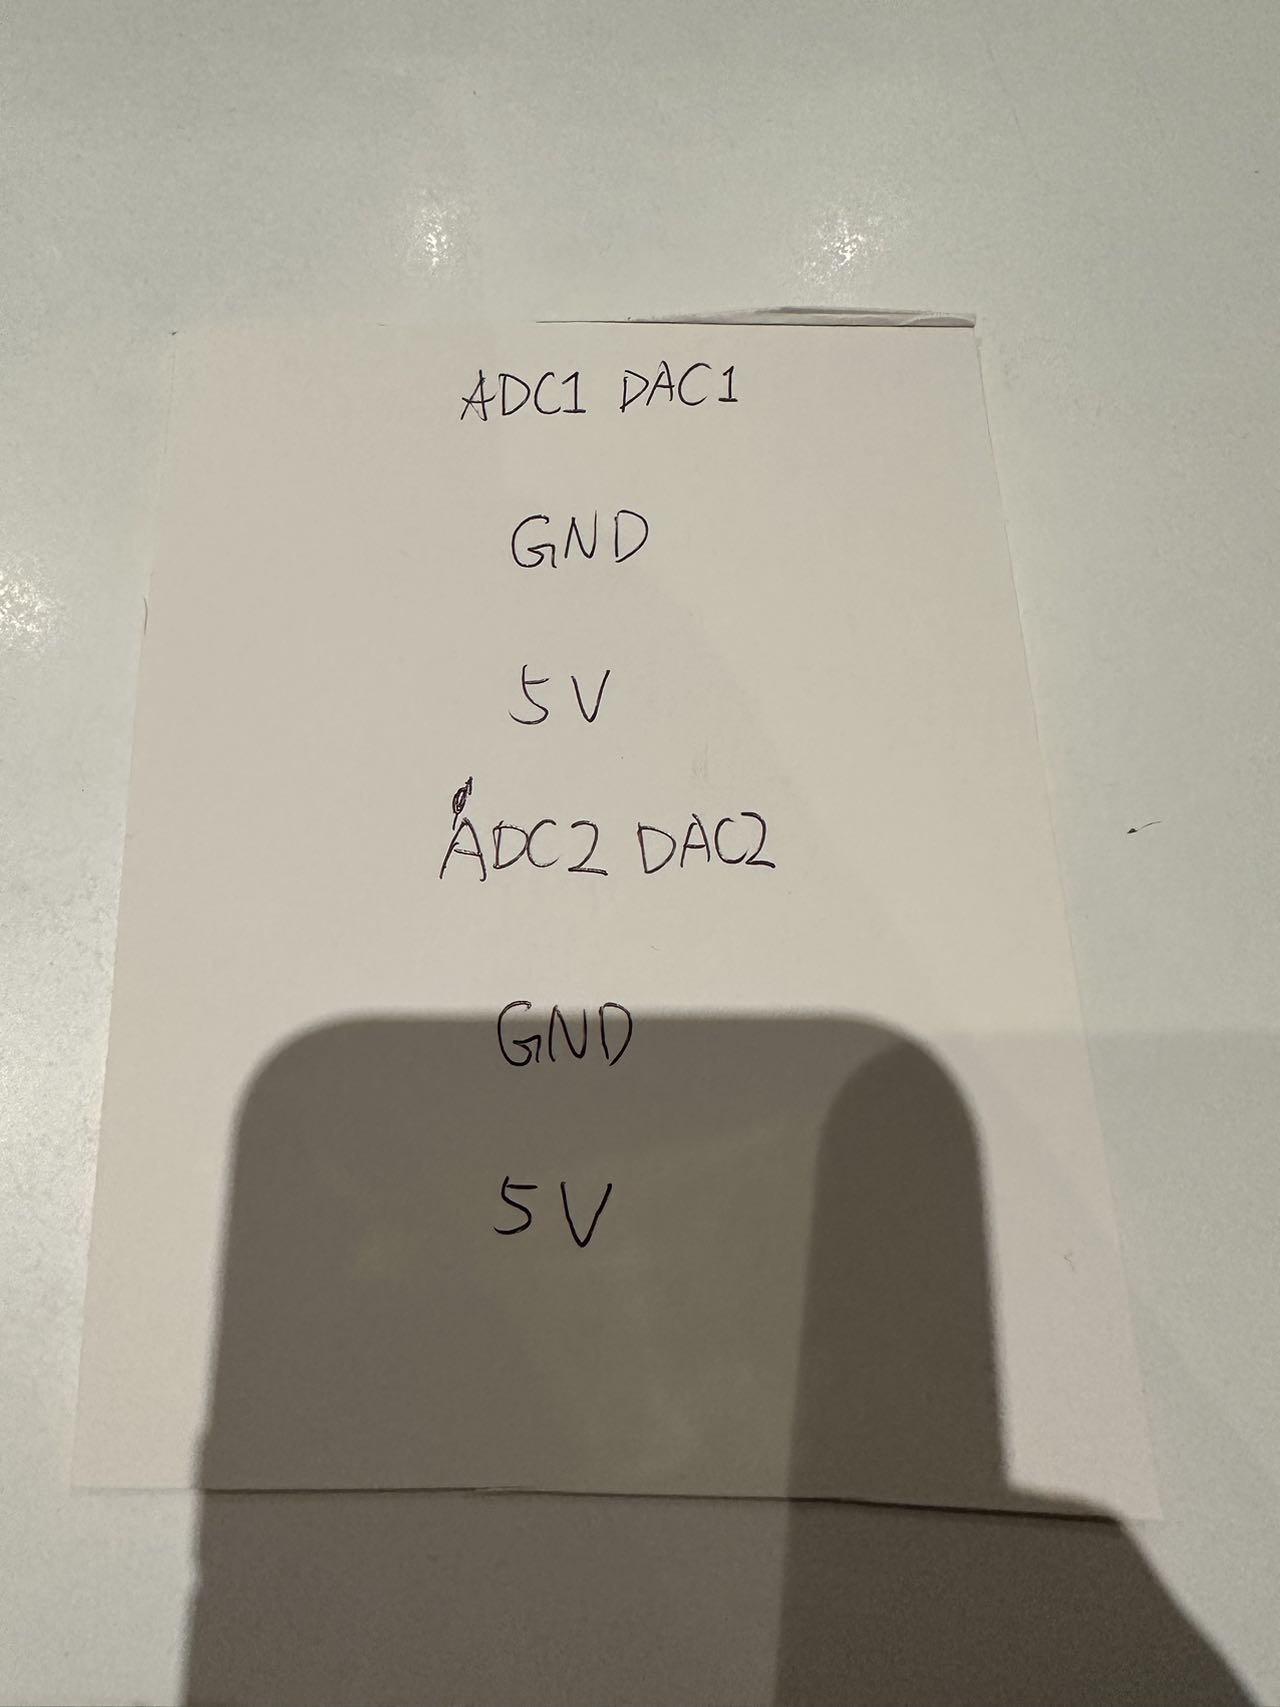 ADC1 DAC1
GND
5V
ADC2 DAC2
GND
5V